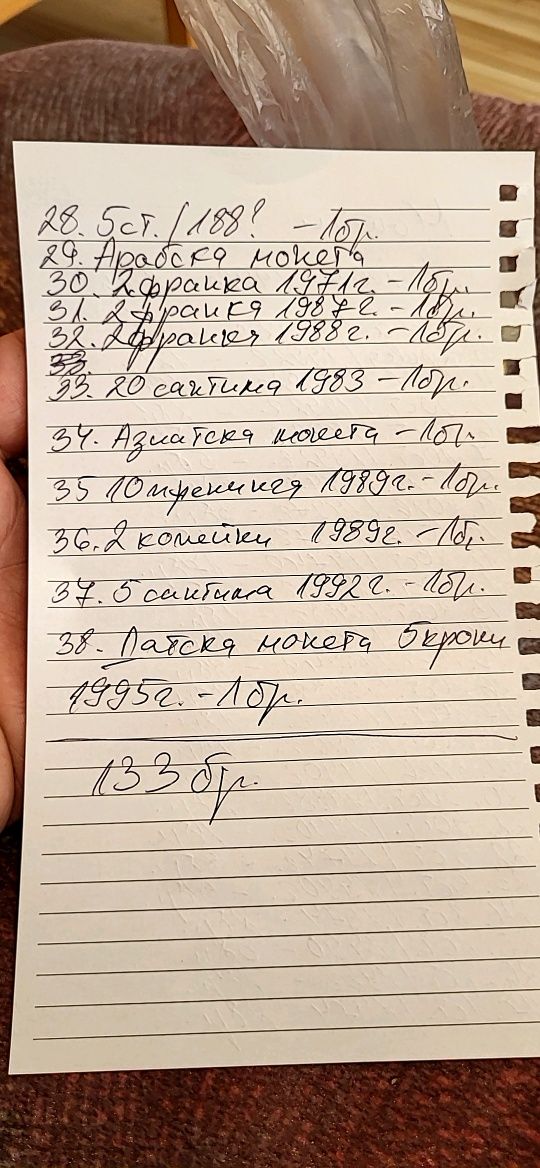 28. 5ст. / 188? - 1бр.
29. Арабска монета
30. 2 франка 1971г. - 1бр.
31. 2 франка 1987г. - 1бр.
32. 2 франка 1988г. - 1бр.
33. 20 сантима 1983 - 1бр.
34. Азиатска монета - 1бр.
35 10 пфенинга 1989г. - 1бр.
36. 2 копейки 1989г. - 1бр.
37. 5 сантима 1992г. - 1бр.
38. Датска монета 5 крони
1995г. - 1бр.
133 бр.